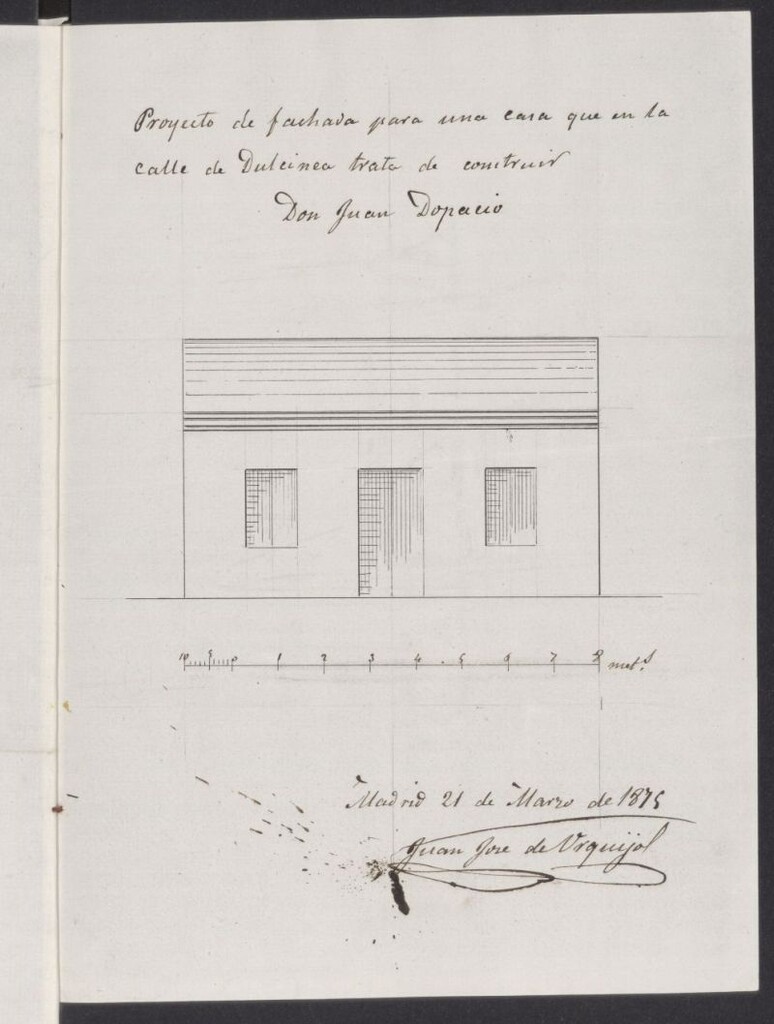 Proyecto de fachada para una casa que en la
calle de Dulcinea trata de construir
Don Juan Dopacio
10 5 0 1 2 3 4 5 6 7 8 met.s
Madrid 21 de Marzo de 1875
Juan Jose de Urquijo